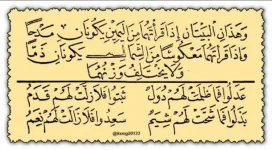 وَهٰذَانِ الْبَيْتَانِ إِذَا قَرَأْتَهُمَا مِنَ الْيَمِينِ يَكُونَانِ مَدْحاً
وَإِذَا قَرَأْتَهُمَا مَعْكُوسًا مِنَ الشِّمَالِ يَكُونَانِ ذَمًّا
وَلَا يَخْتَلِفُ وَزْنُهُمَا
عَدَلُوا فَمَا ظَلَمَتْ لَهُمْ دُوَلٌ ثَبَتُوا فَلَا زَلَّتْ لَهُمْ قَدَمٌ
بَذَلُوا فَمَا شَحَّتْ لَهُمْ شِيَمٌ سَعِدُوا فَلَا زَالَتْ لَهُمْ نِعَمٌ